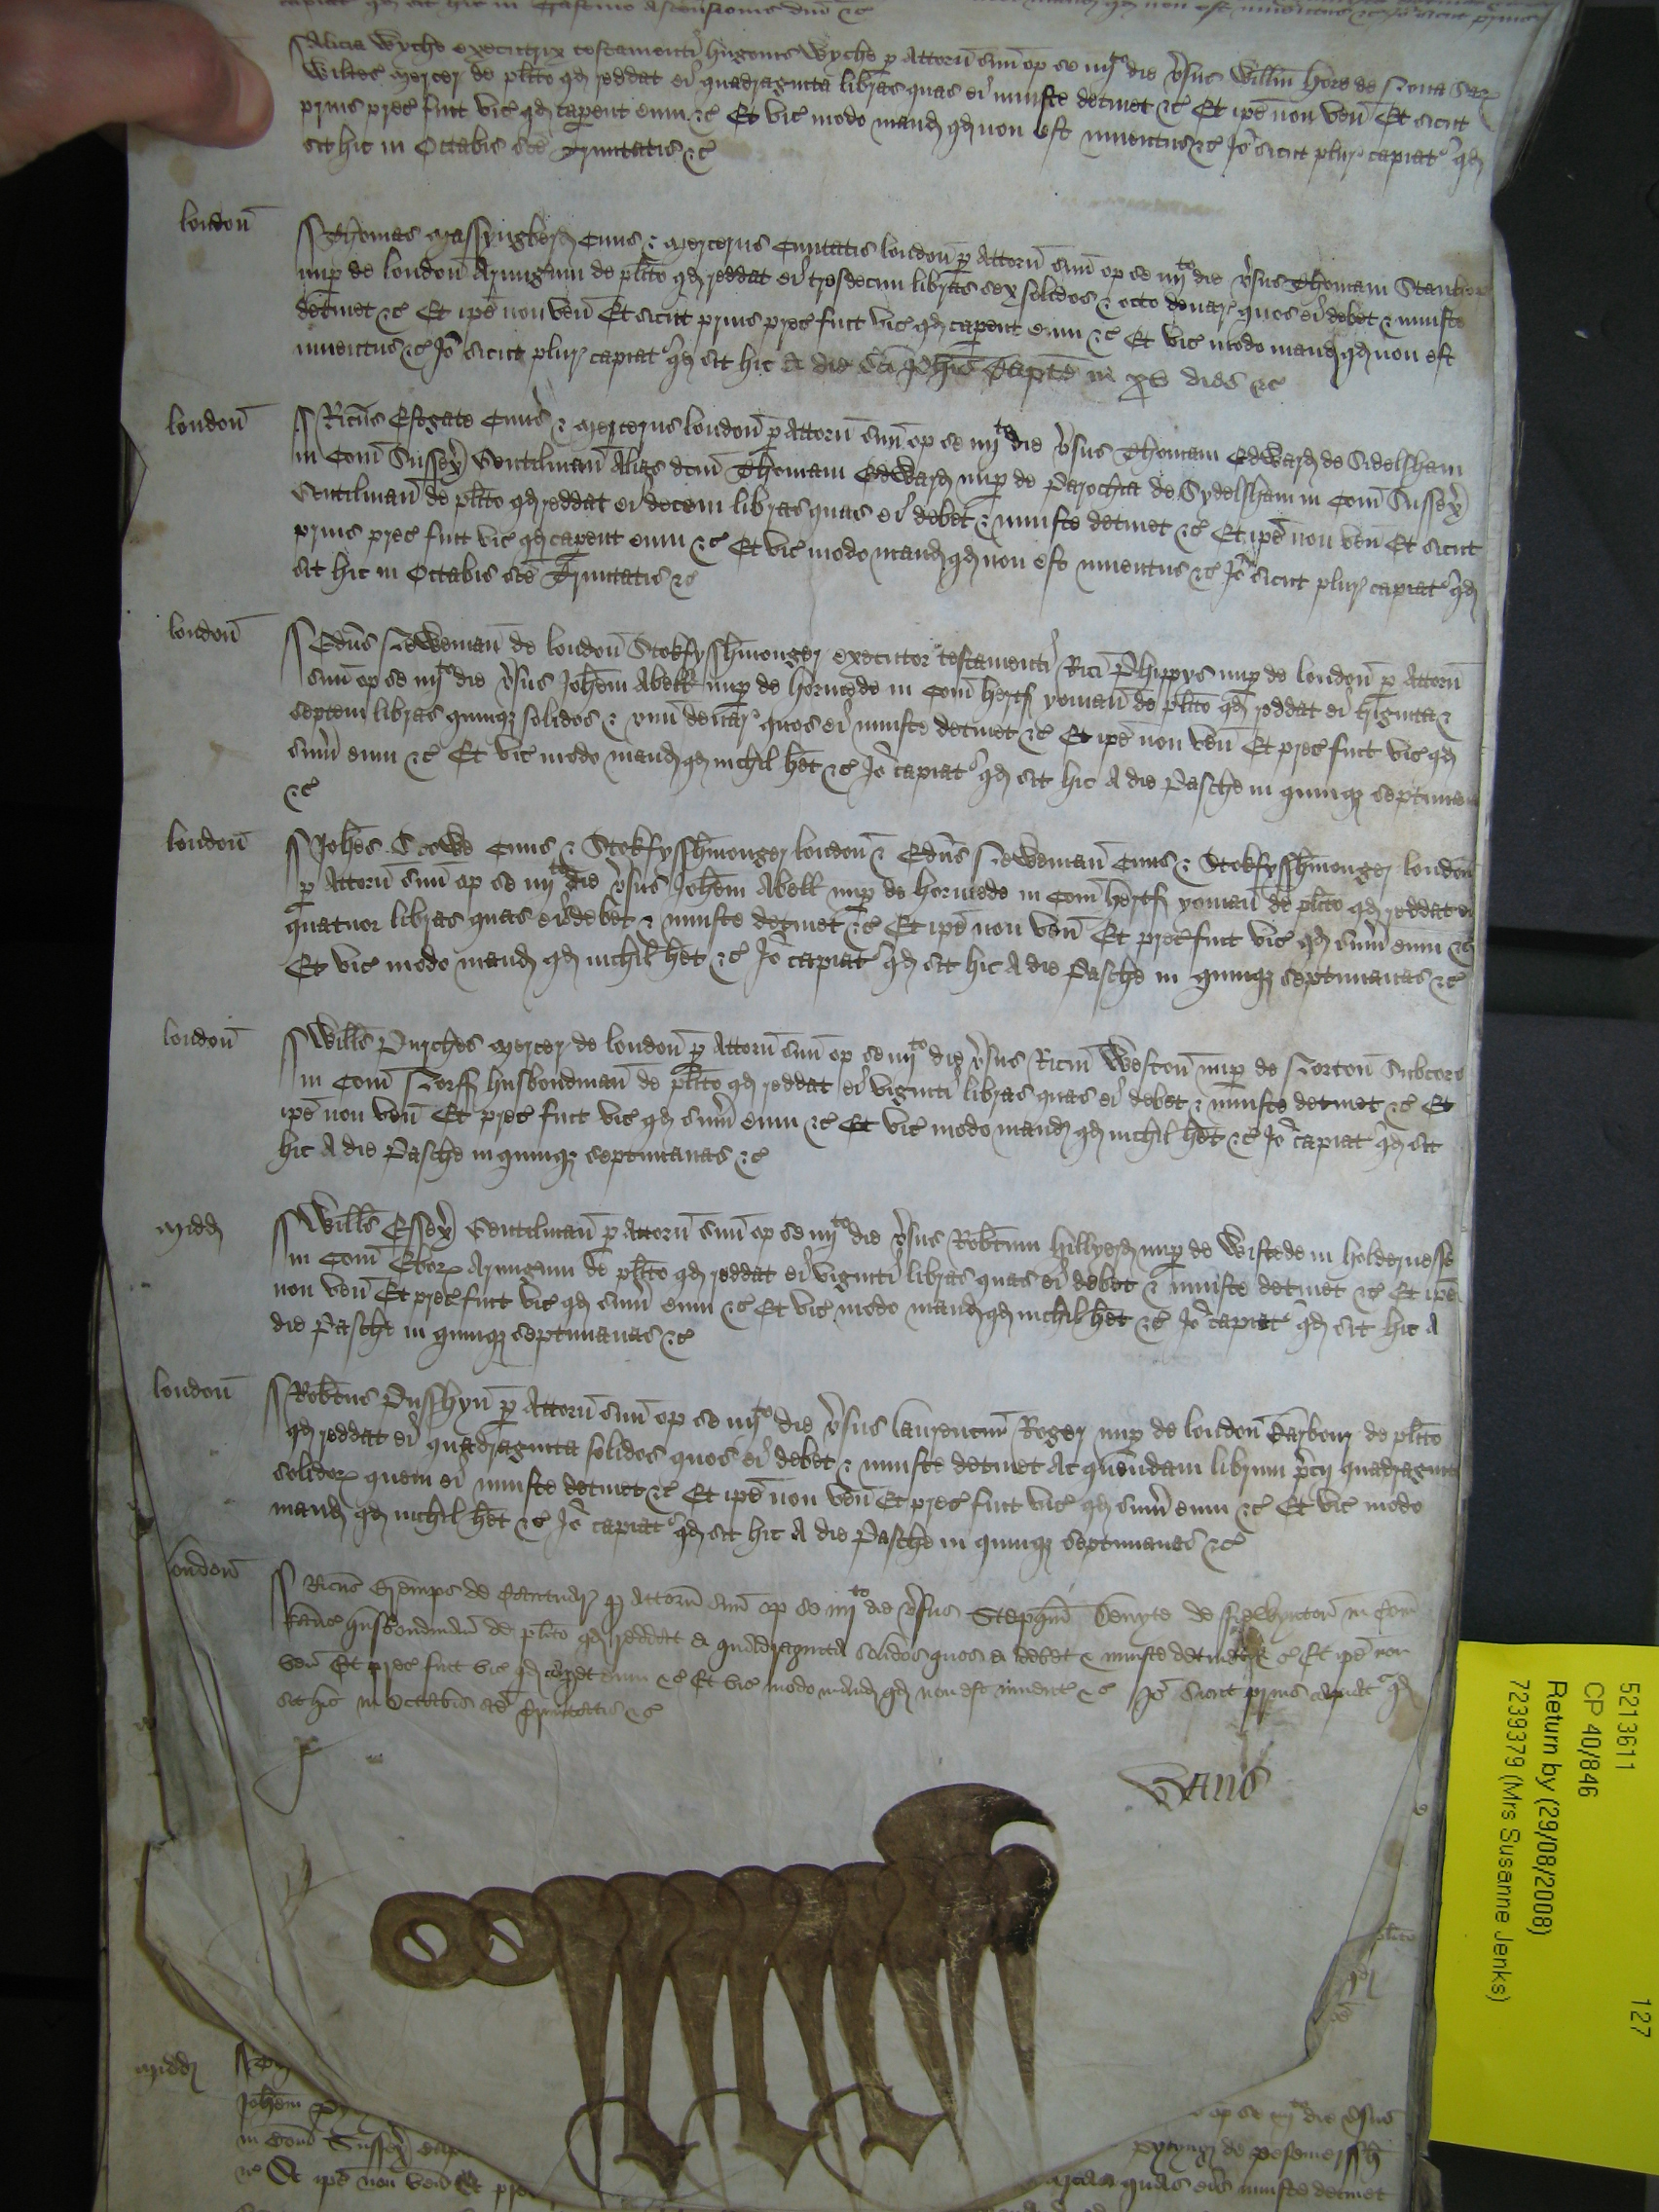 Alicia Wyche executrix testamenti Hugonis Wyche p Attorn suu op se iiijto die vsus Willm Hore de Noua Saꝝ
Wiltes mercer de plito qd reddat ei quadraginta libras quas ei iniuste detinet &c Et ipe non ven Et sicut
prius prec fuit vic qd caperent eum &c Et vic modo mand qd non est inuentus &c Io sicut plur capiat qd
sit hic in Octabis sce Trinitatis &c
london
Thomas Massyngberd Ciuis & Mercerus Ciuitatis london p Attorn suu op se iiijto die vsus Thomam
nup de london Armigum de plito qd reddat ei tresdecim libras sex solidos & octo denar quos ei debet & iniuste
detinet &c Et ipe non ven Et sicut prius prec fuit vic qd caperent eum &c Et vic modo mand qd non est
inuentus &c Io sicut plur capiat qd sit hic a die sci Johis Bapte in xv dies &c
london
Ricus Estgate Ciuis & Mercerus london p Attorn suu op se iiijto die vsus Thomam Edward de Sidelsham
in Com Sussex Gentilman Alias dcm Thomam Edward nup de Parochia de Sydelsham in Com Sussex
Gentilman de plito qd reddat ei decem libras quas ei debet & iniuste detinet &c Et ipe non ven Et sicut
prius prec fuit vic qd caperent eum &c Et vic modo mand qd non est inuentus &c Io sicut plur capiat qd
sit hic in Octabis sce Trinitatis &c
london
Edus Neweman de london Stokfysshmonger executor testamenti Rici Phippys nup de london p Attorn
suu op se iiijto die vsus Johem Abell nup de Hormede in Com Hertf yoman de plito qd reddat ei triginta &
septem libras quinqꝫ solidos & unu denar quos ei iniuste detinet &c Et ipe non ven Et prec fuit vic qd
sum eum &c Et vic modo mand qd nichil het &c Io capiat qd sit hic A die Pasche in quinqꝫ septimanas
&c
london
Johes Crowe Ciuis & Stokfysshmonger london & Edus Neweman Ciuis & Stokfysshmonger london
p Attorn suu op se iiijto die vsus Johem Abell nup de Hormede in Com Hertf yoman de plito qd reddat ei
quatuor libras quas ei debet & iniuste detinet &c Et ipe non ven Et prec fuit vic qd sum eum &c
Et vic modo mand qd nichil het &c Io capiat qd sit hic A die Pasche in quinqꝫ septimanas &c
london
Wills Purches Mercer de london p Attorn suu op se iiijto die vsus Ricm Weston nup de Norton Subcors
in Com Norff husbondman de plito qd reddat ei viginti libras quas ei debet & iniuste detinet &c Et
ipe non ven Et prec fuit vic qd sum eum &c Et vic modo mand qd nichil het &c Io capiat qd sit
hic A die Pasche in quinqꝫ septimanas &c
Midd
Wills Essex Gentilman p Attorn suu op se iiijto die vsus Robtum Hillyerd nup de Wistede in Holdernesse
in Com Eboꝝ Armigum de plito qd reddat ei viginti libras quas ei debet & iniuste detinet &c Et ipe
non ven Et prec fuit vic qd sum eum &c Et vic modo mand qd nichil het &c Io capiat qd sit hic A
die Pasche in quinqꝫ septimanas &c
london
Robtus Russhyn p Attorn suu op se iiijto die vsus laurencm Roger nup de london Barbour de plito
qd reddat ei quadraginta solidos quos ei debet & iniuste detinet Ac quendam librum pcij quadraginta
solidoꝝ quem ei iniuste detinet &c Et ipe non ven Et prec fuit vic qd sum eum &c Et vic modo
mand qd nichil het &c Io capiat qd sit hic A die Pasche in quinqꝫ septimanas &c
london
Ricus de Cantuar p Attorn suu op se iiijto die vsus Stephm de in Com
Kanc husbondman de plito qd reddat ei quadraginta solidos quos ei debet & iniuste detinet &c Et ipe non
ven Et prec fuit vic qd eum &c Et vic modo mand qd non est inuent &c Io sicut prius capiat qd
sit hic in Octabis sce Trinitatis &c
Midd
Johem
in Com Sussex
&c Et ipe non ven Et
op se iiijto die vsus
de
quas eis iniuste detinet
5213611 127
CP 40/846
Return by (29/08/2008)
7239379 (Mrs Susanne Jenks)